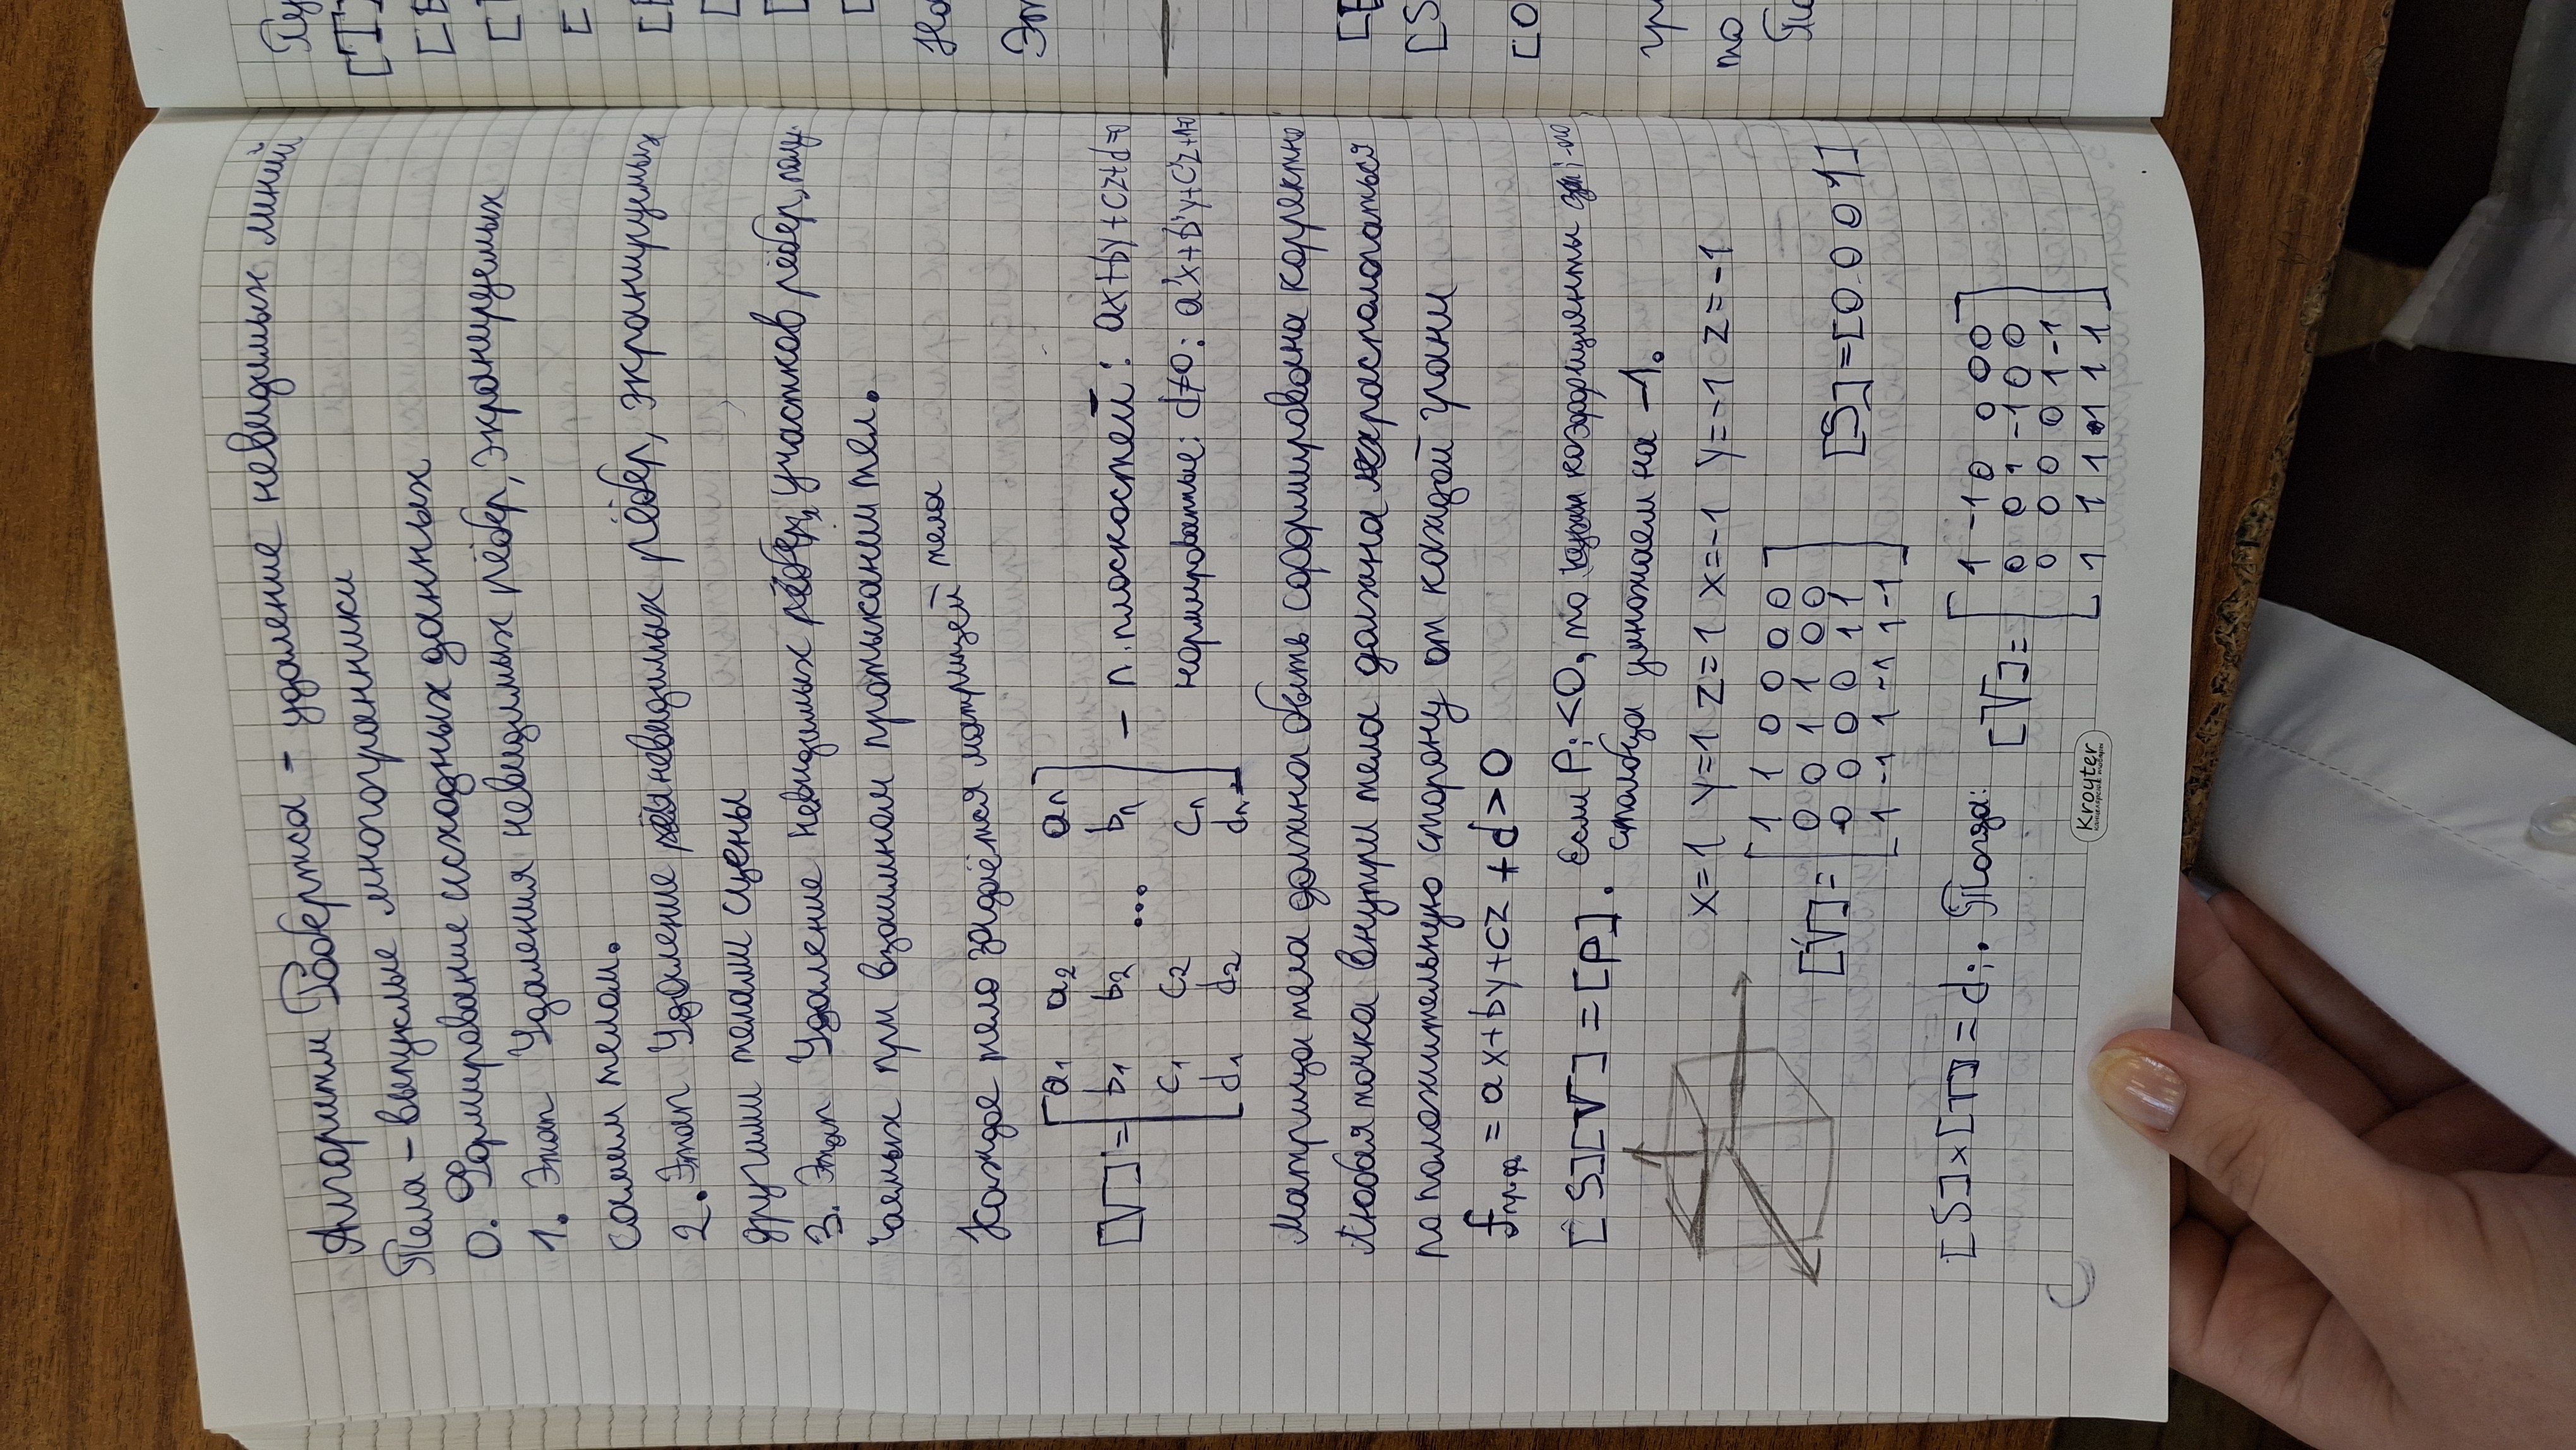 Алгоритм Робертса – удаление невидимых линий
Тела – выпуклые многогранники
0. Формирование исходных данных
1. Этап Удаления невидимых рёбер, экранируемых
самим телом.
2. Этап Удаление невидимых рёбер, экранируемых
другими телами сцены
3. Этап Удаление невидимых участков рёбер, полу-
чаемых при взаимном протыкании тел.
Каждое тело задаётся матрицей тела
[V] = [ a1 a2 ... an
b1 b2 ... bn
c1 c2 cn
d1 d2 dn ]
– n плоскостей: ax+by+cz+d=0
нормированные: d≠0: a'x+b'y+c'z+1=0
Матрица тела должна быть сформирована корректно
Любая точка внутри тела должна распологаться
по положительную сторону от каждой грани
fпр.ф. = ax+by+cz+d>0
[S][V] = [P]. Если Pi<0, то коэффициенты i-го
столбца умножаем на –1.
x=1 y=1 z=1 x=-1 y=-1 z=-1
[V]= [ 1 1 0 0 0 0
0 0 1 1 0 0
0 0 0 0 1 1
1 -1 1 -1 1 -1 ]
[S]=[0 0 0 1]
[S]×[T] = di. Тогда:
[V]= [ 1 -1 0 0 0 0
0 0 1 -1 0 0
0 0 0 0 1 -1
1 1 1 1 1 1 ]
Kroyter
канцелярские товары
Пу
[T
[
[
[
[
Но
Эт
[
[S
[O
гр
то
По